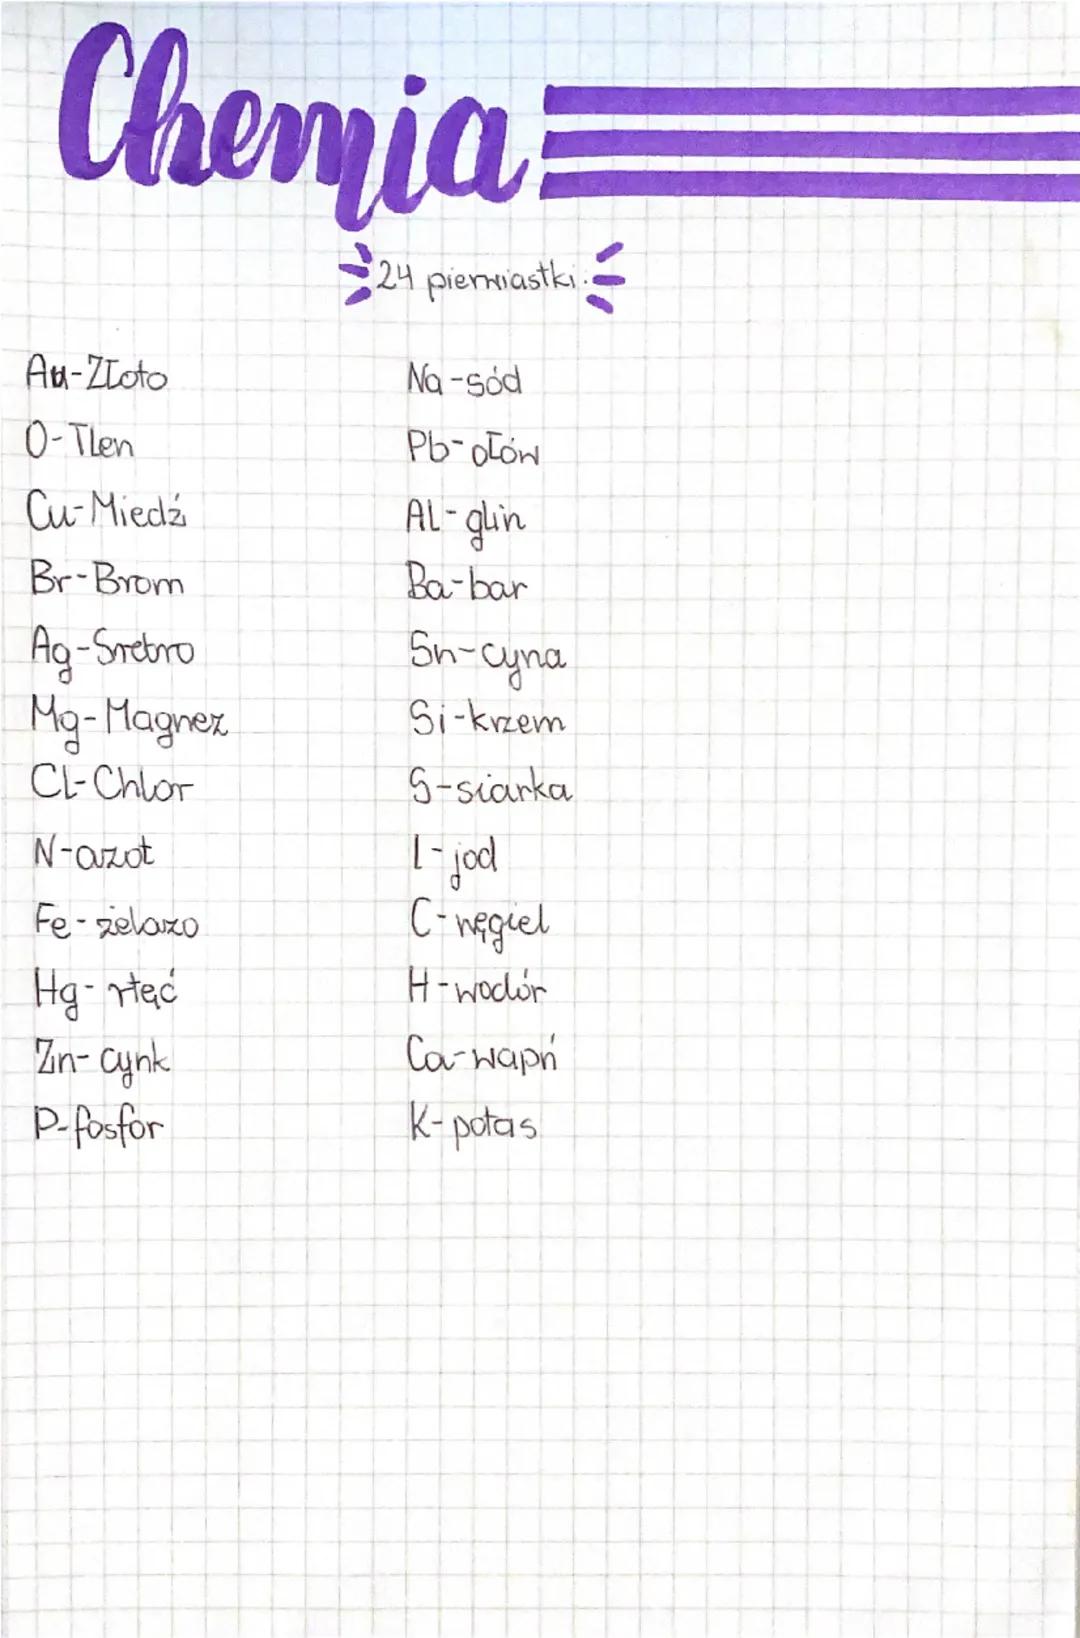 Chemia
24 pierwiastki.
Au-Złoto
O-Tlen
Cu-Miedź
Br-Brom
Ag-Srebro
Mg-Magnez
Cl-Chlor
N-azot
Fe-żelazo
Hg-rtęć
Zn-cynk
P-fosfor
Na-sód
Pb-ołów
Al-glin
Ba-bar
Sn-cyna
Si-krzem
S-siarka
I-jod
C-węgiel
H-wodór
Ca-wapń
K-potas